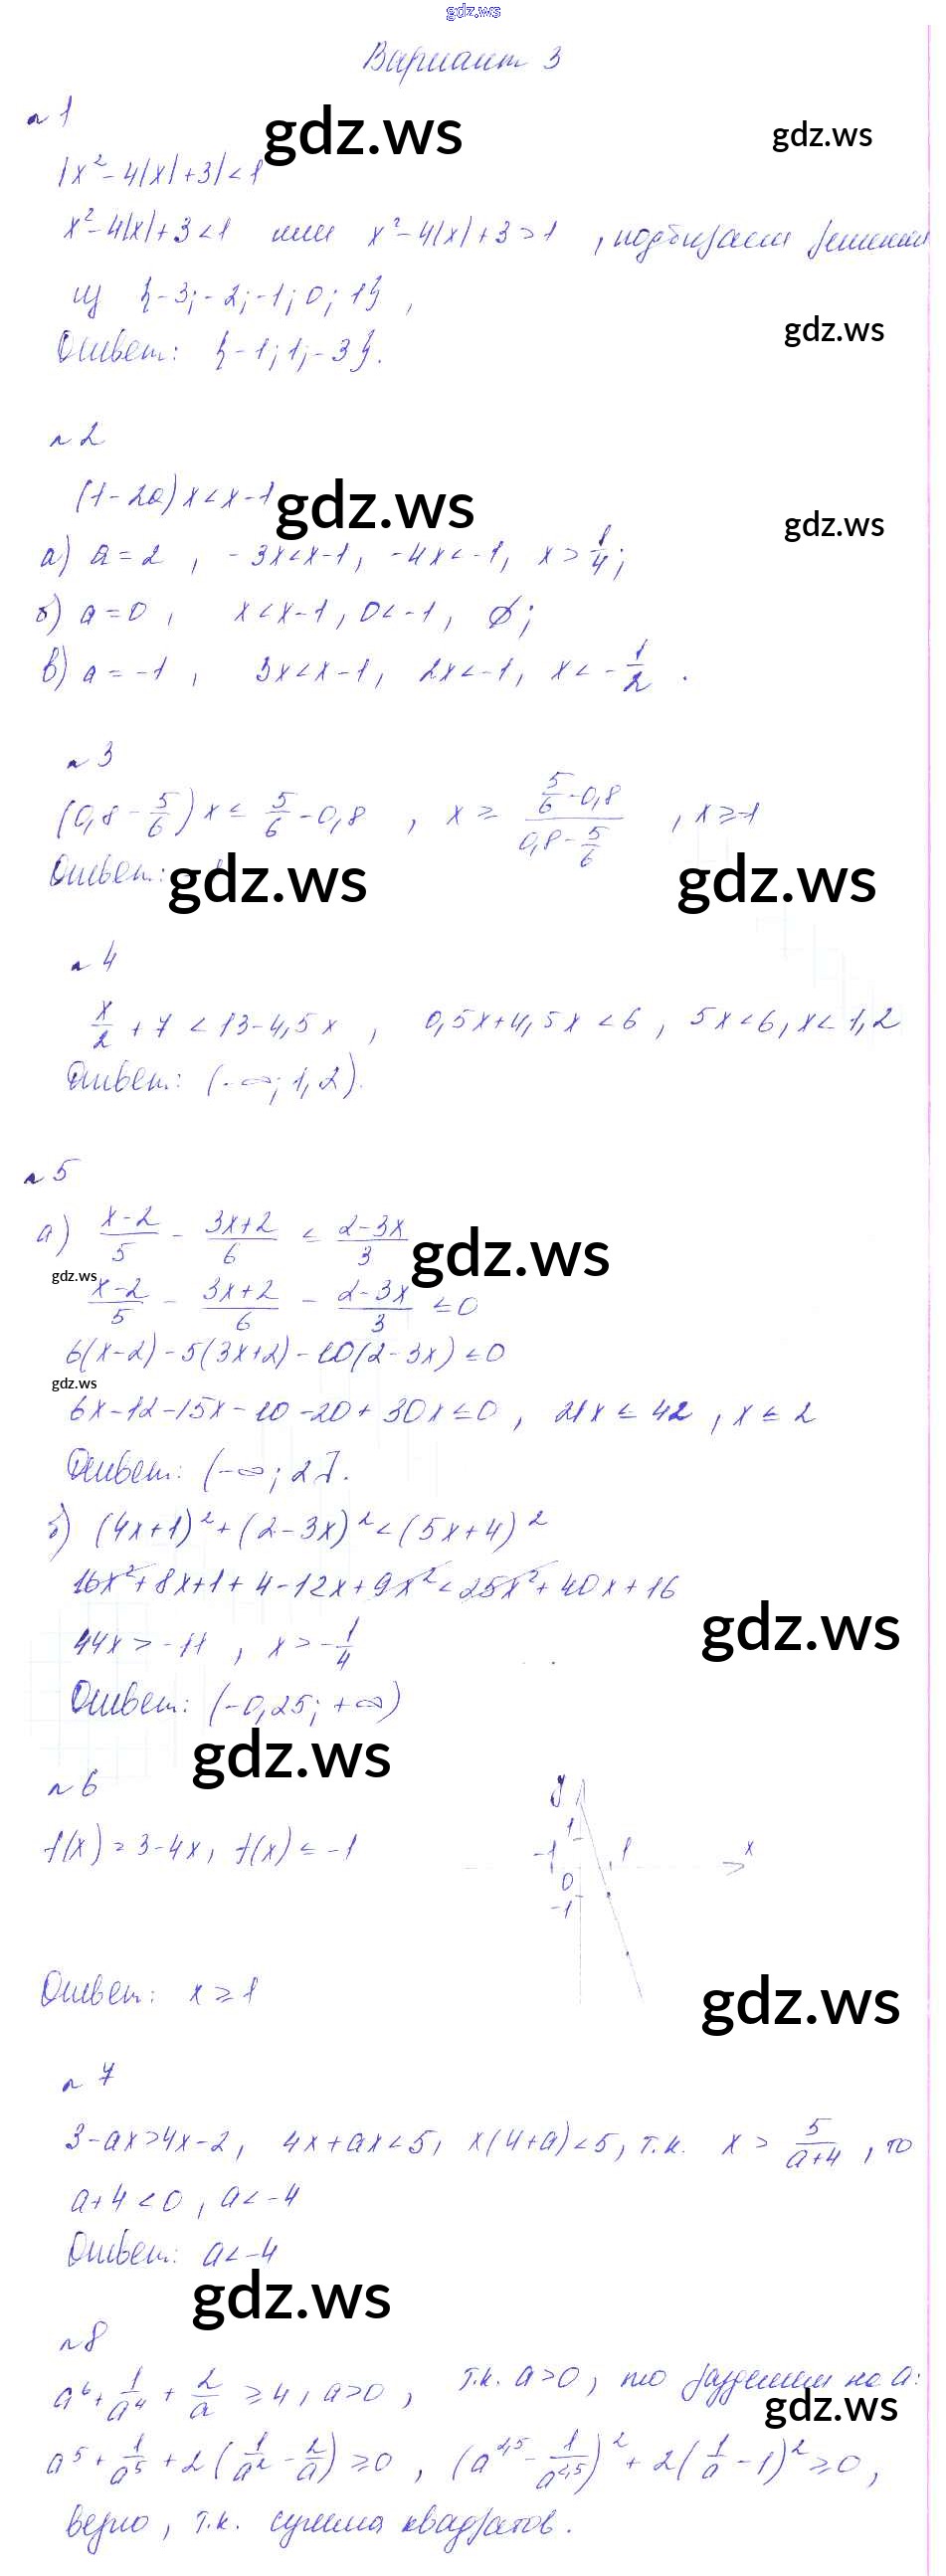 gdz.ws
Вариант 3
№1
gdz.ws
gdz.ws
|x²-4|x|+3|<1
x²-4|x|+3<1 или x²-4|x|+3>1, подбираем решения
из {-3;-2;-1;0;1},
gdz.ws
Ответ: {-1;1;-3}.
№2
(1-2a)x<x-1
gdz.ws
gdz.ws
а) a=2, -3x<x-1, -4x<-1, x>1/4;
б) a=0, x<x-1, 0<-1, ∅;
в) a=-1, 3x<x-1, 2x<-1, x<-1/2.
№3
(0,8-5/6)x≤5/6-0,8, x≥(5/6-0,8)/(0,8-5/6), x≥-1
Ответ:
gdz.ws
gdz.ws
№4
x/2+7<13-4,5x, 0,5x+4,5x<6, 5x<6, x<1,2
Ответ: (-∞;1,2).
№5
а) (x-2)/5-(3x+2)/6≤(2-3x)/3
gdz.ws
gdz.ws
(x-2)/5-(3x+2)/6-(2-3x)/3≤0
6(x-2)-5(3x+2)-10(2-3x)≤0
gdz.ws
6x-12-15x-10-20+30x≤0, 21x≤42, x≤2
Ответ: (-∞;2].
б) (4x+1)²+(2-3x)²<(5x+4)²
16x²+8x+1+4-12x+9x²<25x²+40x+16
gdz.ws
44x>-11, x>-1/4
Ответ: (-0,25;+∞)
gdz.ws
№6
y
f(x)=3-4x, f(x)≤-1
1
-1
1
x
0
-1
Ответ: x≥1
gdz.ws
№7
3-ax>4x-2, 4x+ax<5, x(4+a)<5, т.к. x>5/(a+4), то
a+4<0, a<-4
Ответ: a<-4
gdz.ws
№8
a⁶+1/a⁴+2/a≥4, a>0, т.к. a>0, то разделим на a:
gdz.ws
a⁵+1/a⁵+2(1/a²-2/a)≥0, (a^2,5-1/a^2,5)²+2(1/a-1)²≥0,
верно, т.к. сумма квадратов.